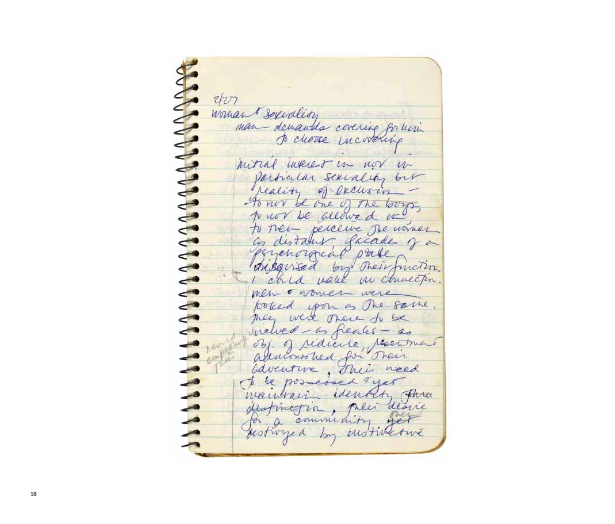 2/27
woman & sexuality
man demands covering for him
to choose uncovering
initial interest in not in
particular sexuality but
reality of exclusion –
to not be one of the boys,
to not be allowed in,
to then perceive the women
as distant facades of a
psychological state
disguised by their function.
I could make no connection.
men & women were
looked upon as the same.
they were there to be
viewed – as freaks – as
obj. of ridicule, resentment
admonished for their
adventure, their need
to be possessed & yet
maintain identity thru
distinction, their desire
for a community yet
destroyed by instinctive
18